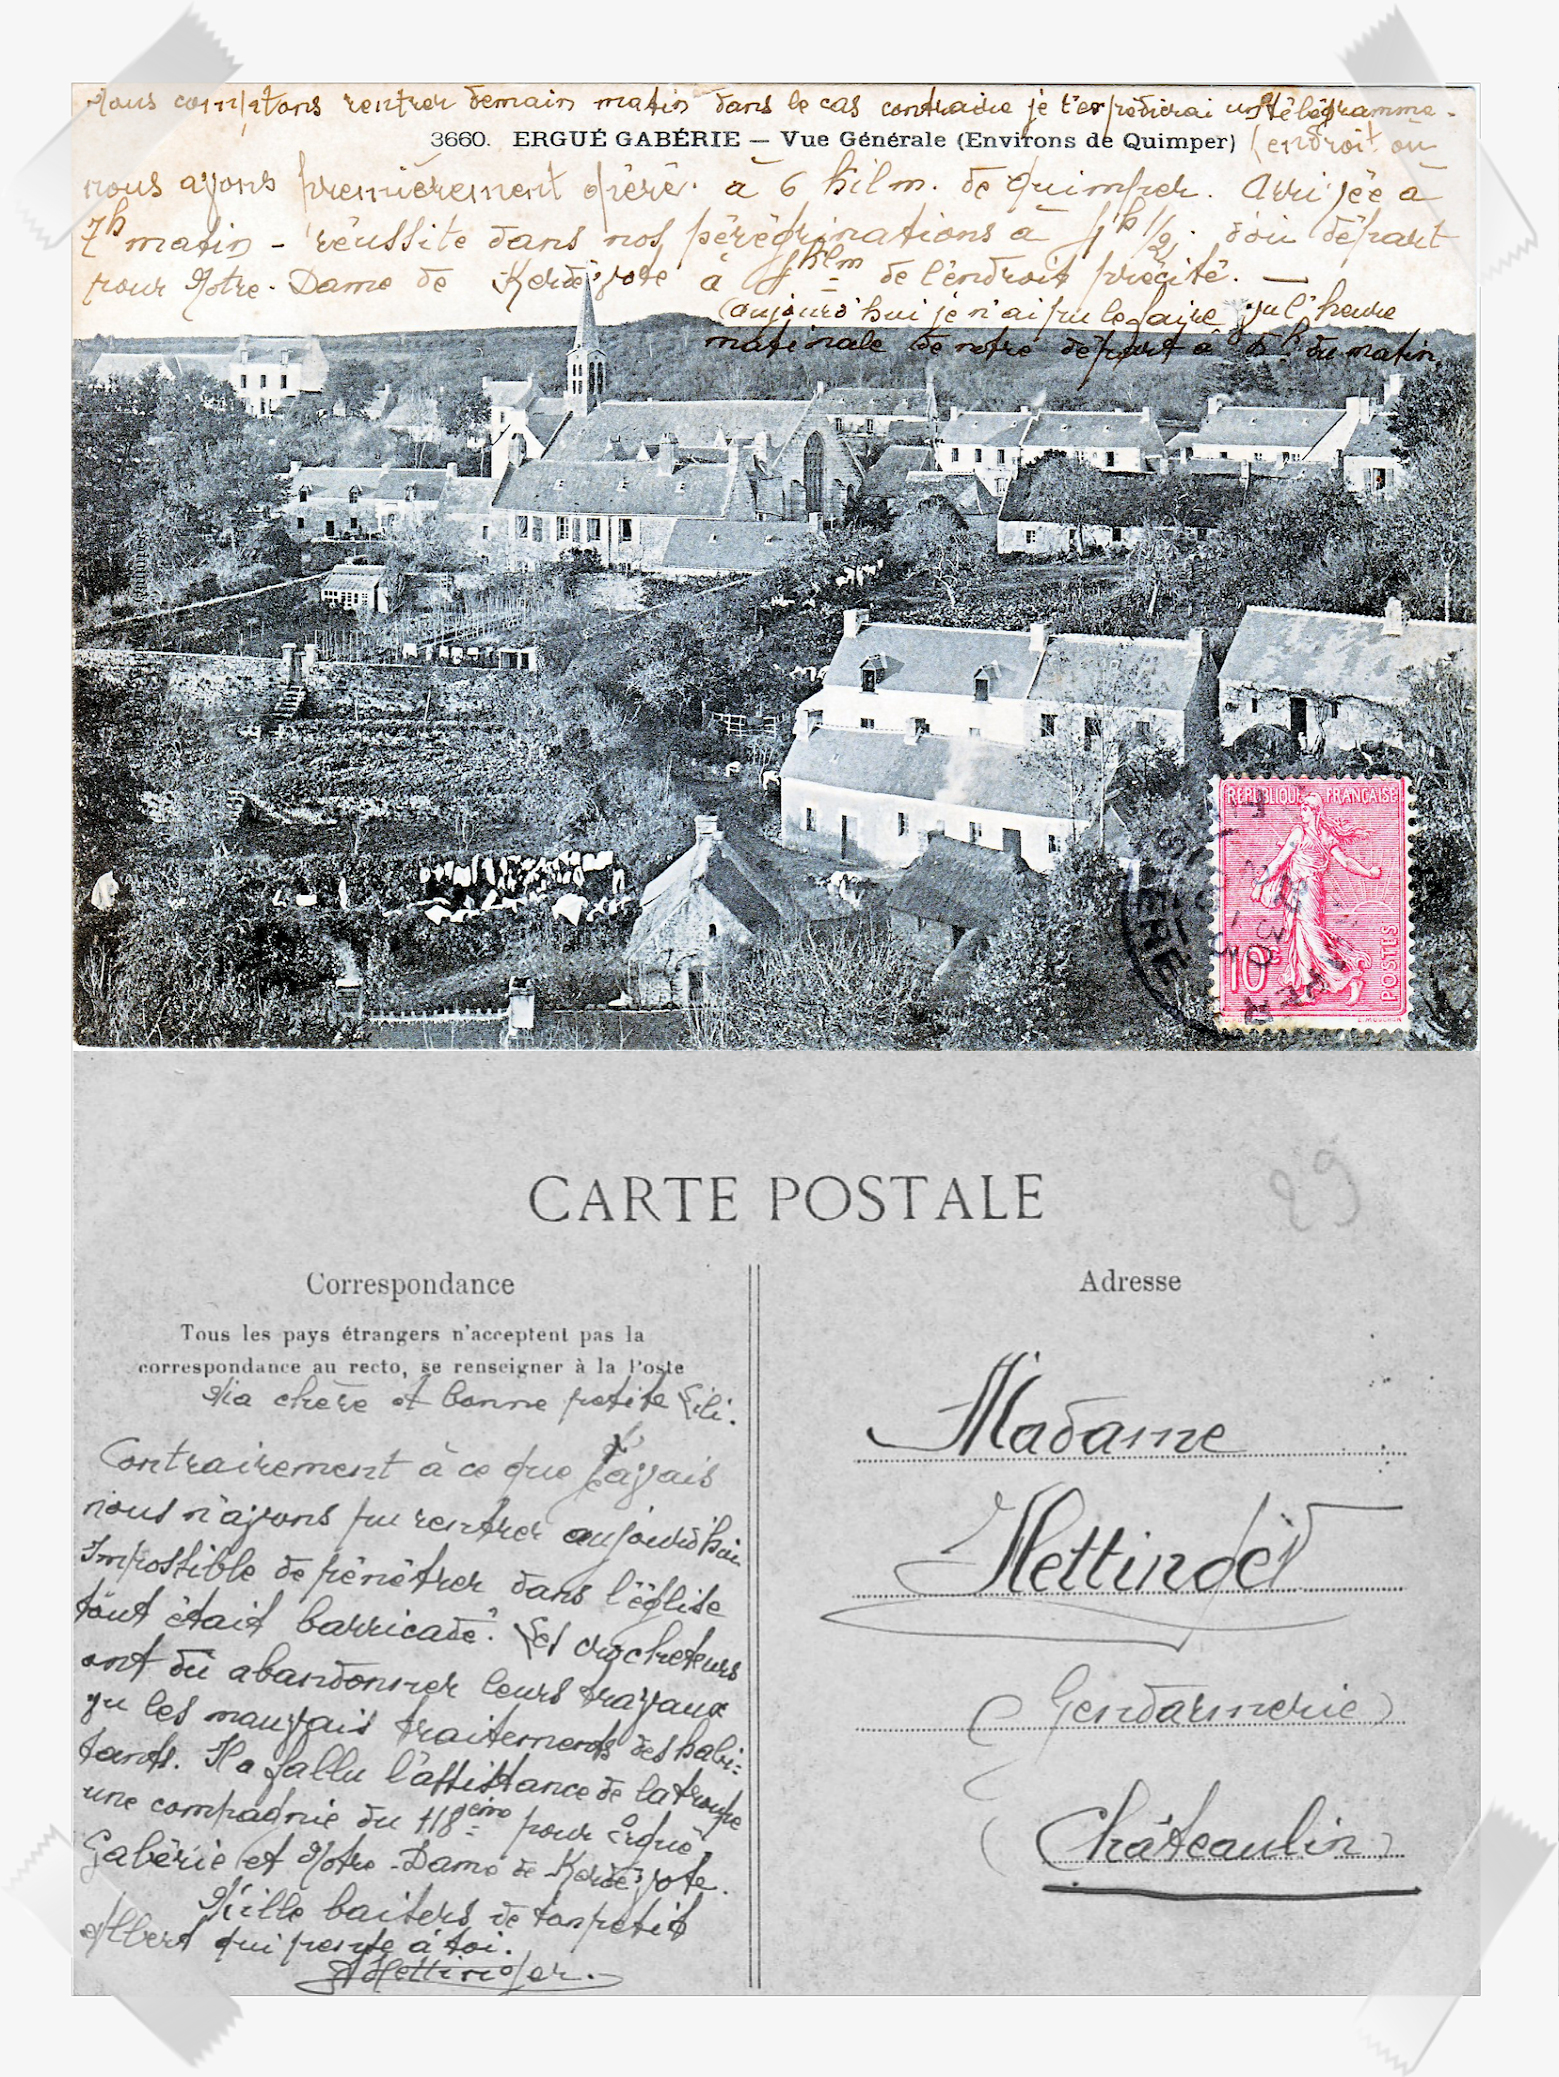 Nous comptons rentrer demain matin dans le cas contraire je t'expédierai un télégramme.
3660. ERGUÉ GABÉRIE — Vue Générale (Environs de Quimper)
(endroit où
nous avons premièrement opéré. à 6 kilm. de Quimper. Arrivée à
7h matin - réussite dans nos pérégrinations à 1h 1/2. d'où départ
pour Notre-Dame de Kerdévote à 4 klm de l'endroit précité. —
(aujourd'hui je n'ai pu le faire vu l'heure
matinale de notre départ à 5h du matin.
RÉPUBLIQUE FRANÇAISE
10c
POSTES
CARTE POSTALE
29
Correspondance
Adresse
Tous les pays étrangers n'acceptent pas la
correspondance au recto, se renseigner à la Poste
Ma chère et bonne petite Lili.
Contrairement à ce que j'avais
nous n'avons pu rentrer aujourd'hui
Impossible de pénétrer dans l'église
tout était barricadé. Les crocheteurs
ont dû abandonner leurs travaux
vu les mauvais traitements des habi=
tants. Il a fallu l'assistance de la troupe
une compagnie du 118ème pour Ergué
Gabérie et Notre-Dame de Kerdévote.
Mille baisers de ton petit
Albert qui pense à toi.
AHettinger.
Madame
Hettinger
Gendarmerie
Châteaulin